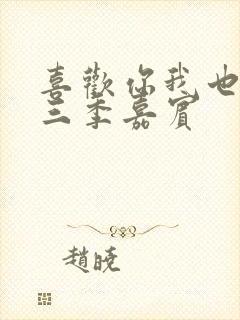 喜歡你我也
三季嘉賓
趙曉